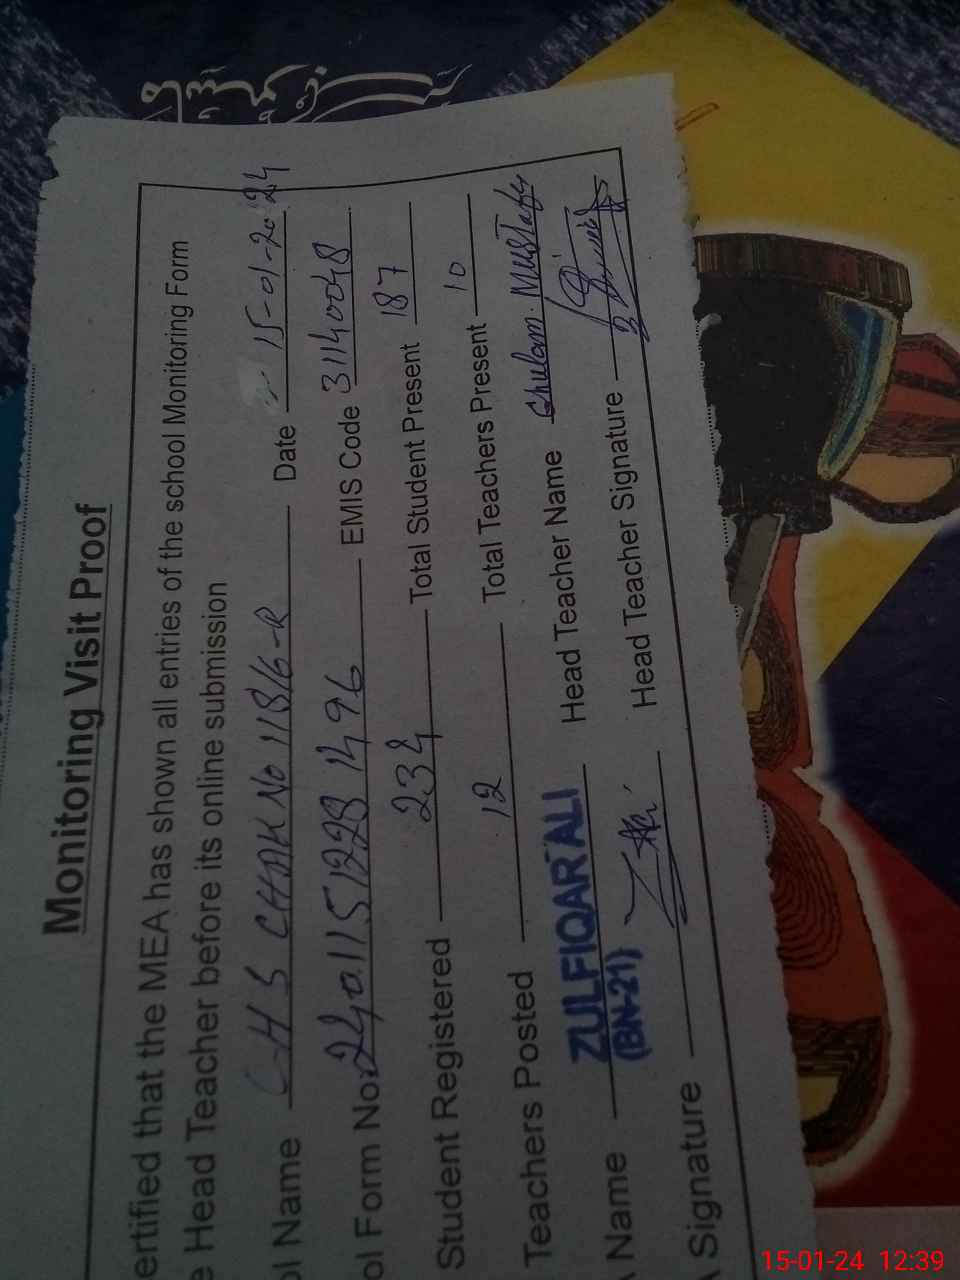 Monitoring Visit Proof
ertified that the MEA has shown all entries of the school Monitoring Form
e Head Teacher before its online submission
ol Name GHS CHAK No 118/6-R Date 15-01-2024
ol Form No. 240115122814 96 EMIS Code 31140048
Student Registered 234 Total Student Present 187
Teachers Posted 12 Total Teachers Present 10
Name ZULFIQAR ALI Head Teacher Name Ghulam Mustafa
(BN-21)
Signature Head Teacher Signature
15-01-24 12:39